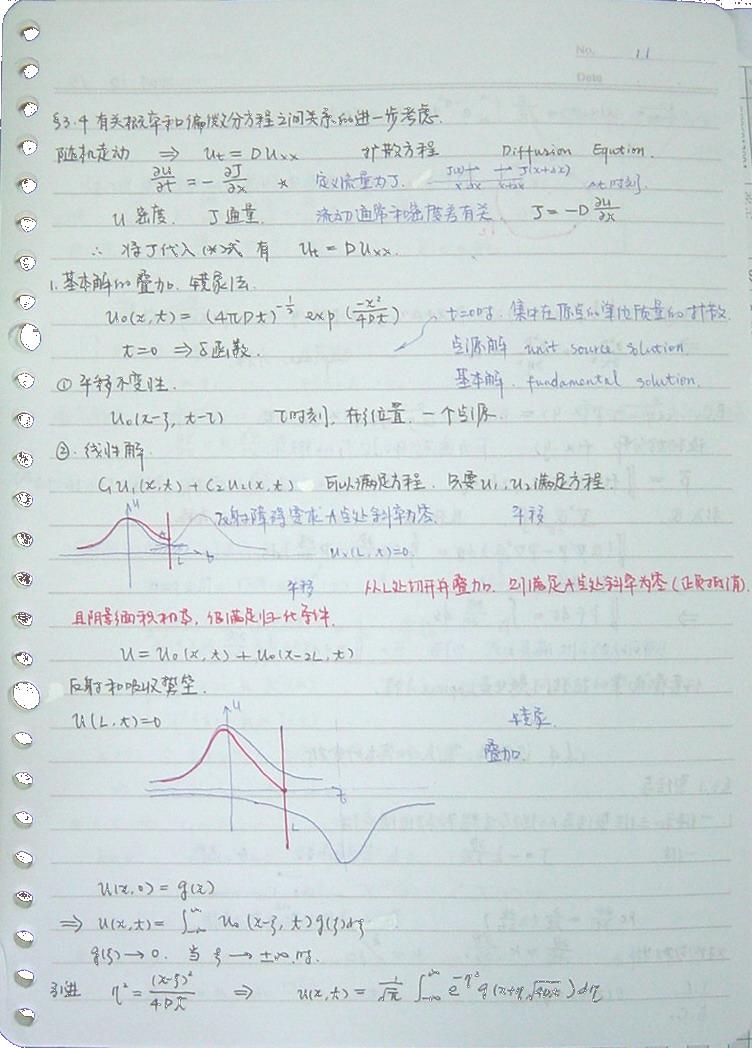 No. 11
Date
§3.4 有关概率和偏微分方程之间关系的进一步考虑.
随机走动 ⇒ u_t = D u_xx 扩散方程 Diffusion Eqution.
∂u/∂t = -∂J/∂x * 定义流量为J. J(x)→ →J(x+Δx) x x+Δx Δt时刻.
u 密度. J 通量. 流动通常和密度差有关 J = -D ∂u/∂x
∴ 将J代入(*)式 有 u_t = D u_xx.
1. 基本解的叠加. 镜象法.
u₀(x,t) = (4πDt)^(-1/2) exp(-x²/4Dt) t=0时. 集中在原点的单位质量的扩散.
t=0 ⇒ δ函数. 点源解 unit source solution.
① 平移不变性. 基本解. fundamental solution.
u₀(x-ξ, t-τ) τ时刻, 在ξ位置, 一个点源.
②. 线性解.
C₁u₁(x,t) + C₂u₂(x,t) 可以满足方程. 只要u₁, u₂满足方程.
u 反射障碍要求A点处斜率为零 平移
A L u_x(L,t)=0.
平移 从L处切开并叠加. 则满足A点处斜率为零(正负抵消).
且阴影面积相等, 仍满足归一化条件.
u = u₀(x,t) + u₀(x-2L,t)
反射和吸收壁垒.
u
u(L,t)=0 镜象.
叠加.
L
u(x,0) = g(x)
⇒ u(x,t) = ∫_{-∞}^{∞} u₀(x-ξ, t) g(ξ) dξ
g(ξ) → 0. 当 ξ → ±∞ 时.
引进 η² = (x-ξ)²/4Dt ⇒ u(x,t) = 1/√π ∫_{-∞}^{∞} e^{-η²} g(x+η√4Dt) dη